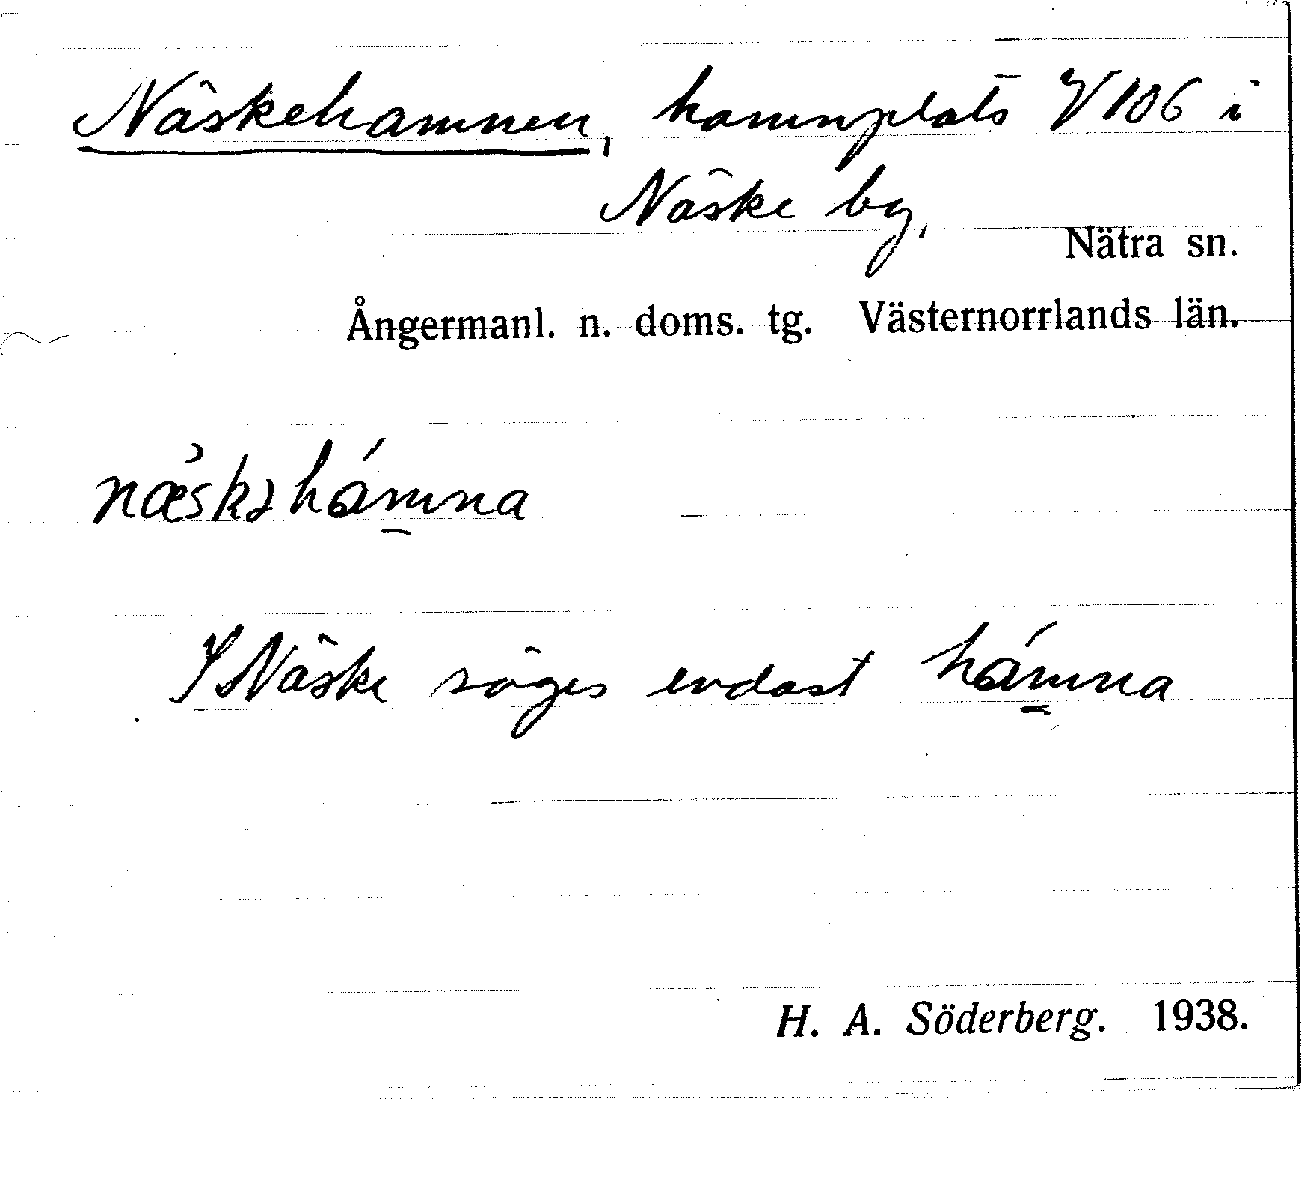 Näskehamnen, hamnplats V 106 i
Näske by,
Nätra sn.
Ångermanl. n. doms. tg. Västernorrlands län.
næ̀skəhámna
I Näske säges endast hámna
H. A. Söderberg. 1938.